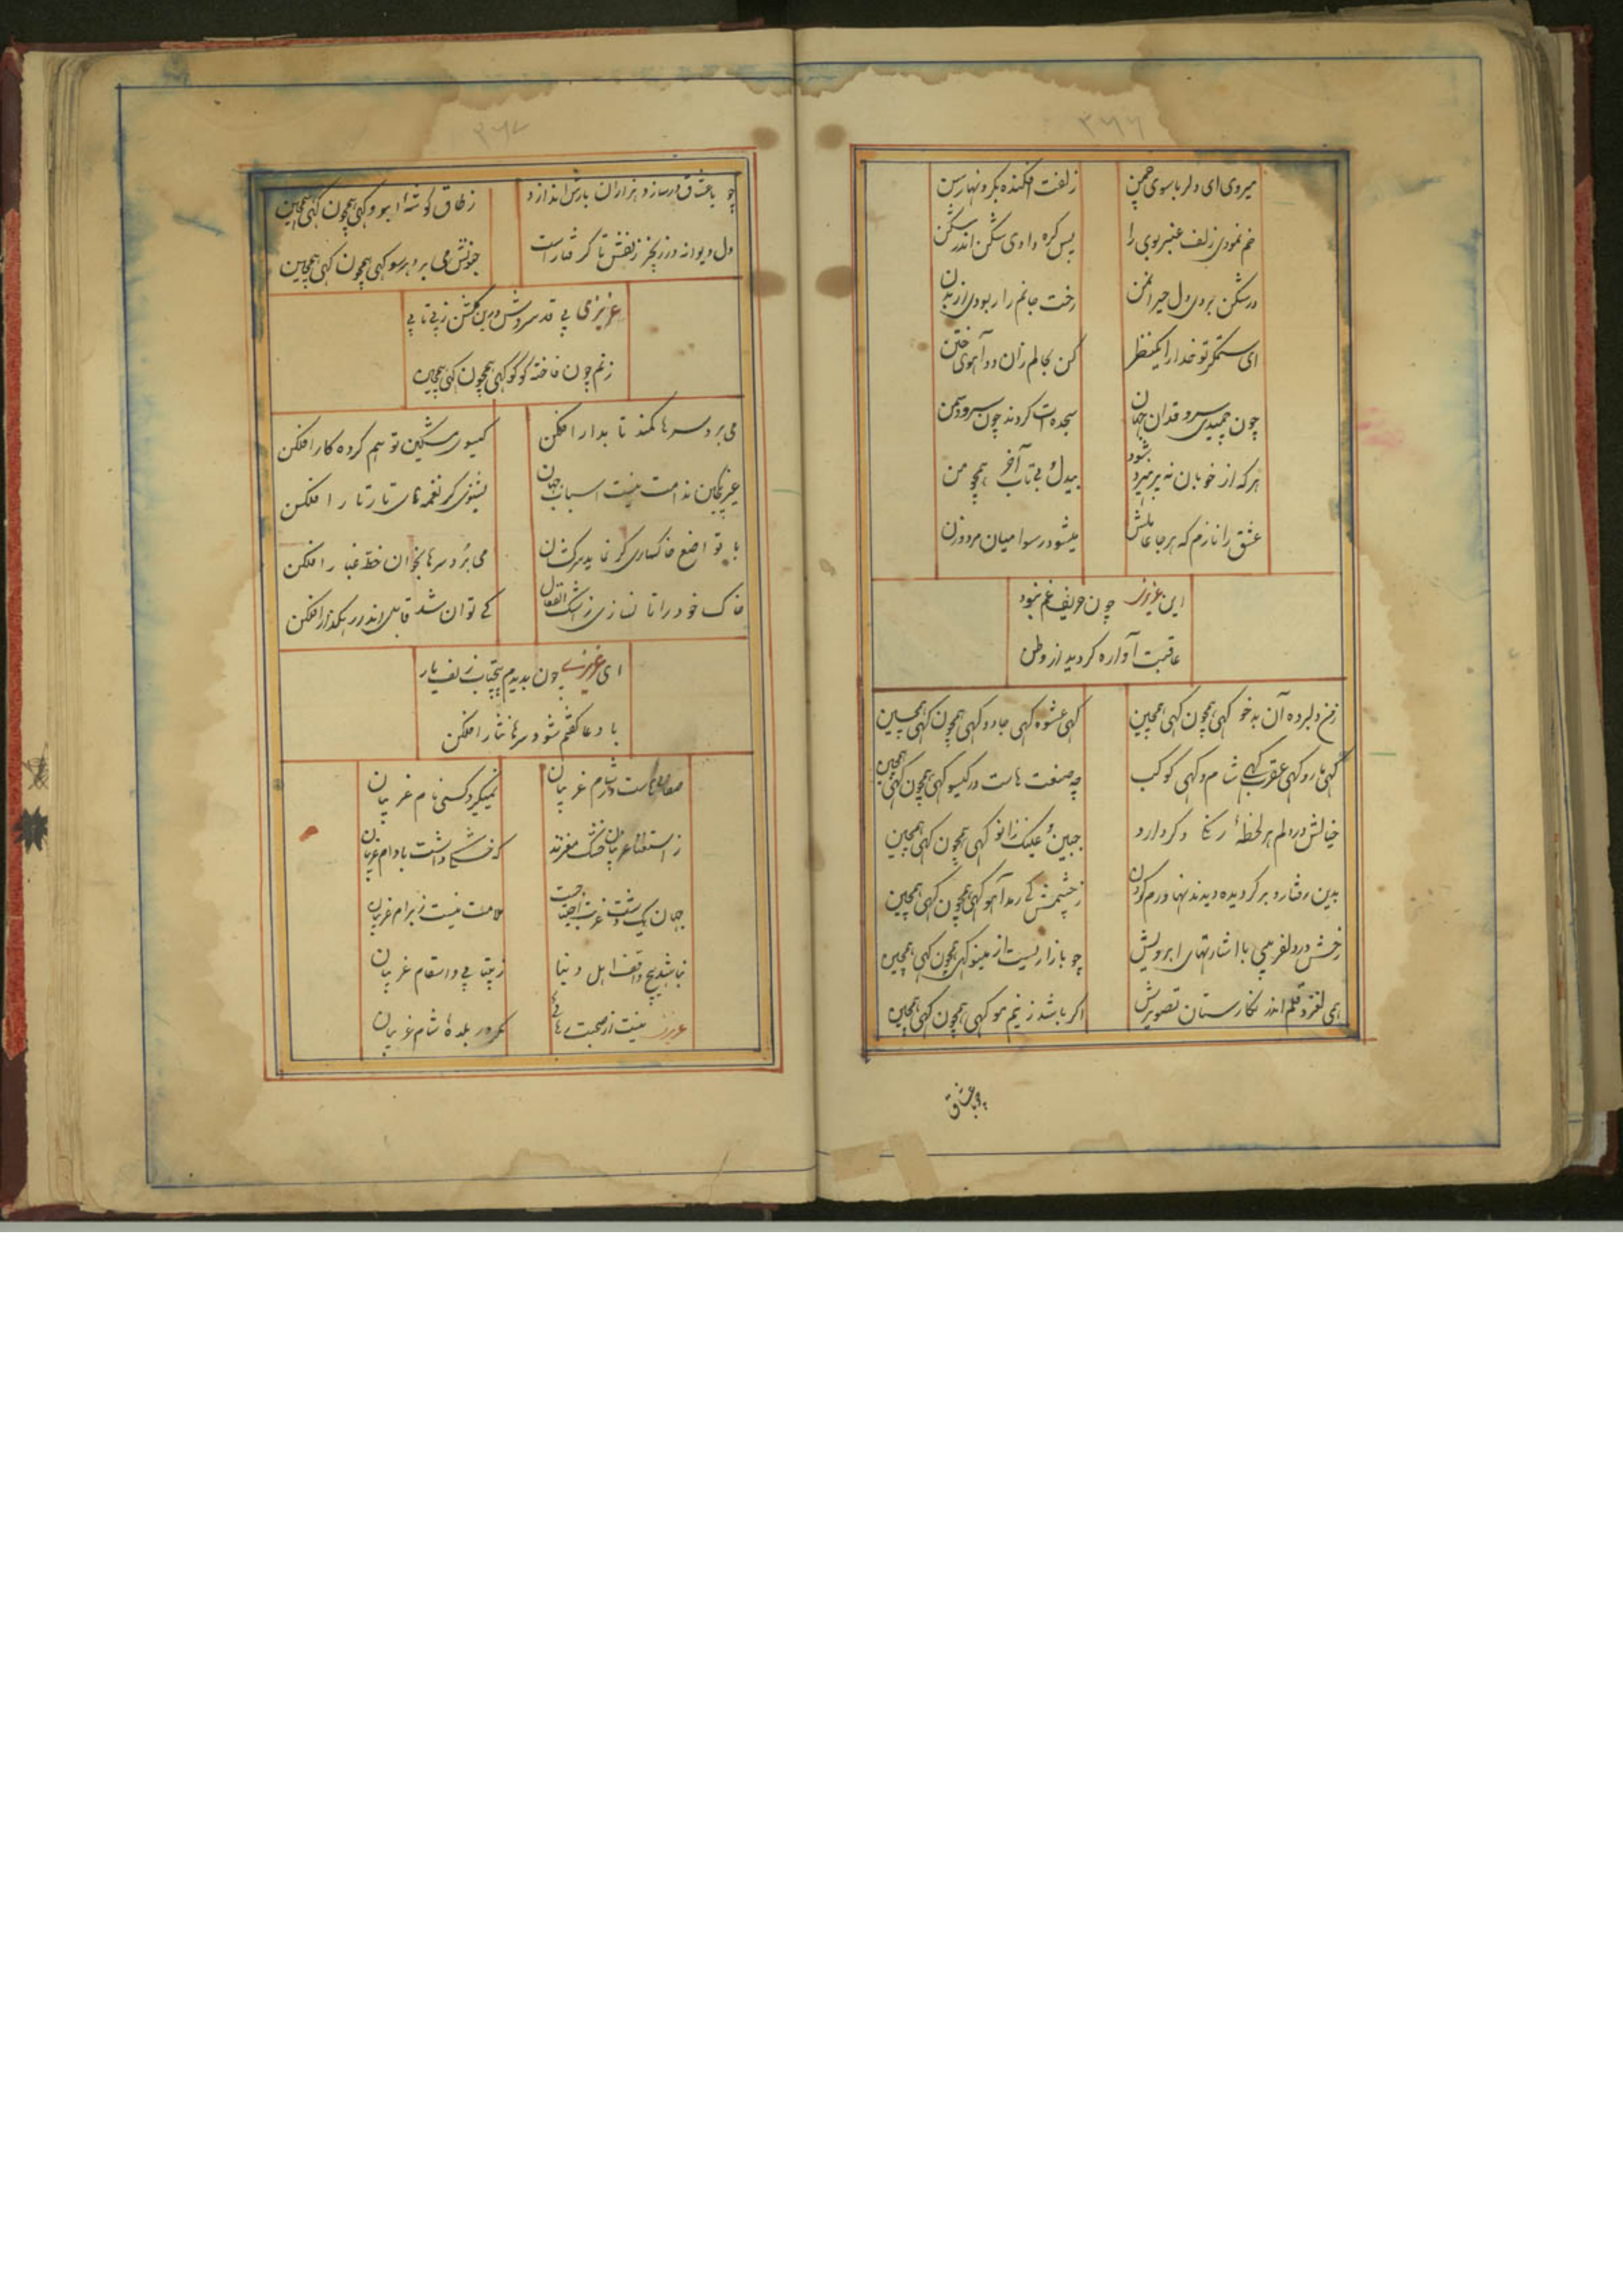 ۳۶۶
میروی ای دلربا سوی چمن
زلفت افکنده بگرد نهارسن
خم نمودی زلف عنبر بوی را
بس گره دادی شکن اندر شکن
در شکن بردی دل حیران من
رخت جانم را ربودی از بدن
ای ستمگر تو خدا را یکنظر
کن بحالم زان دو آهوی ختن
چون چمیدی سرو قدان جهان
سجده‌ات کردند چون سرو و سمن
هر که از خوبان نه پرمیرد شود
بیدل و بی تاب آخر همچو من
عشق را نازم که هر جا عاملش
میشود رسوا میان مرد و زن
این عزیزی چون حریف غم نبود
عاقبت آواره گردید از وطن
زمن دل برده آن بدخو گهی همچون گهی همچین
گهی عشوه گهی جادو گهی همچون گهی همچین
گهی مار و گهی عقرب گهی شام و گهی کوکب
چه صنعت هاست در گیسو گهی همچون گهی همچین
خیالش در دلم هر لحظهٔ رنگ دگر دارد
جبین و عینک زانو گهی همچون گهی همچین
بدین رفتار و برگردیده دیدنها و رم کردن
ز چشمش کی رمد آهو گهی همچون گهی همچین
رخش در دلفریبی با اشارتهای ابرویش
چو بازاریست از مینو گهی همچون گهی همچین
همی لغزد قلم اندر نگارستان تصویرش
اگر باشد ز نیم مو گهی همچون گهی همچین
چو با عشاق
۳۶۷
چو با عشاق در سازد هزاران بارش اندازد
ز طاق گوشه ابرو گهی همچون گهی همچین
دل دیوانه در زنجیر زلفش تا گرفتار است
جنونش می برد هر سو گهی همچون گهی همچین
عزیزی بی قد سروش درین گلشن ز بی تابی
زنم چون فاخته کوکو گهی همچون گهی همچین
می برد سرها کمند تابدار افکن
گیسوی مشکین تو هم کرده کار افکن
غیر ندامت نیست اسباب جهان
بشنوی گر نغمه های تار تار افکن
با تواضع خاکساری گر نماید سرکشان
می برد سرها بخوان خط غبار افکن
خاک خود را تا نسازی ز اشک انفعال
کے توان شد قابل اندر رهگذار افکن
ای عزیزی چون بدیدم پیچتاب زلف یار
با دعا گفتم شود سرها نثار افکن
شام غریبان
نمیگیرد کسی نام غریبان
ز استغنا غریبان خشک مغزند
که خشکی داشت بادام غریبان
جهان
ملامت نیست ز ابرام غریبان
نباشد هیچ واقف اهل دنیا
ز بیتابی و اسقام غریبان
عزیزی نیست از صحبت
مگر در بلدهٔ شام غریبان